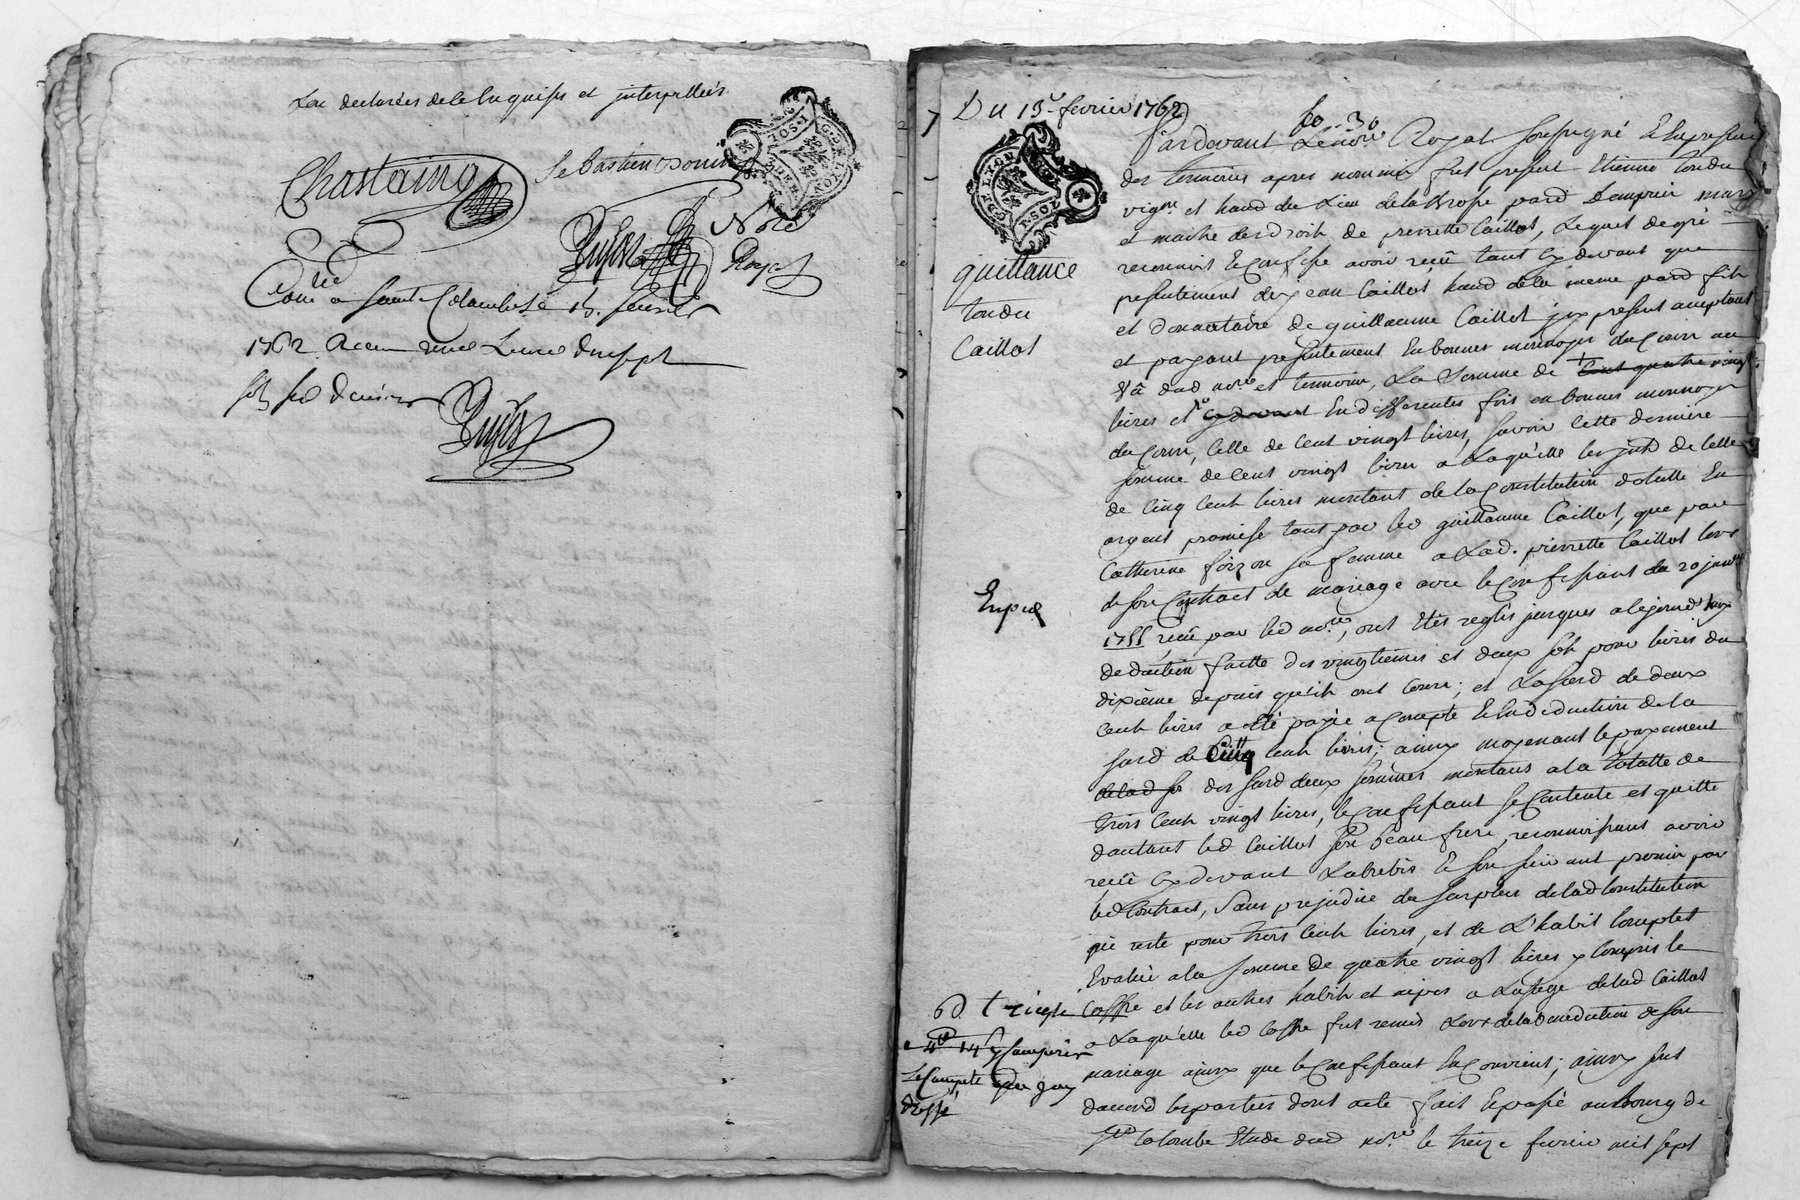 Lon declarées de ce Enquises et interpellées
Chastaing
Sebastien
Dupuis
Nore
Royal
Conlé a Sainte Colombe le 15. fevrier
1762. Recu
sols six deniers
Du 13e fevrier 1762
quittance
tondu
Caillot
Exped
Pardevant Le nore Royal soussigné et en presence
des temoins apres nommés fut present Etienne tondu
vigon et habd du Lieu de la parr d'ampuis mary
et maitre des droits de pierrette Caillot, Lequel de gré
reconnoit et confesse avoir recû tant cy devant que
presentement de jean Caillot habd de la meme parr fils
et donnataire de guillaume Caillot icy present acceptant
et payant presentement en bonnes monnoyes du cours au
vû dud nore et temoins, La Somme de cent quatre vingt
livres et cy devant En differentes fois en bonnes monnoyes
du cours, celle de cent vingt livres, savoir cette derniere
somme de cent vingt livres a Laquelle les jnts de celle
de cinq cent livres montant de la constitution dotalle En
argent promise tant par led guillaume Caillot, que par
Catherine sa femme a Lad. pierrette Caillot lors
de son Contract de mariage avec le confessant du 20 janv
1755 recû par led nore, ont etés reglés jusques a cejourd'huy
deduction faitte des vingtiemes et deux sols pour livres du
dixième depuis qu'ils ont couru; et La susd de deux
cent livres a eté payée a compte et en deduction de la
susd de Cinq cent livres; ainsy moyenant le payement
de lad so des susd deux sommes montans a la totalle de
trois cent vingt livres, le confessant se contente et quitte
dautant led Caillot son beau frere, reconnoissant avoir
recû cy devant La brebis et son suivant promis par
led Contract, sans prejudice du surplus de lad Constitution
qui reste pour trois cent livres, et de L'habit complet
Evalué a la somme de quatre vingt livres y compris le
Coffre et les autres habits et nipes a L'usage de lad Caillot
a Laquelle led Coffre fut remis Lors de la benediction de son
mariage ainsy que le confessant En convient; ainsy sont
daccord les parties dont acte fait et passé au bourg de
Ste Colombe Etude dud nore le treize fevrier mil sept